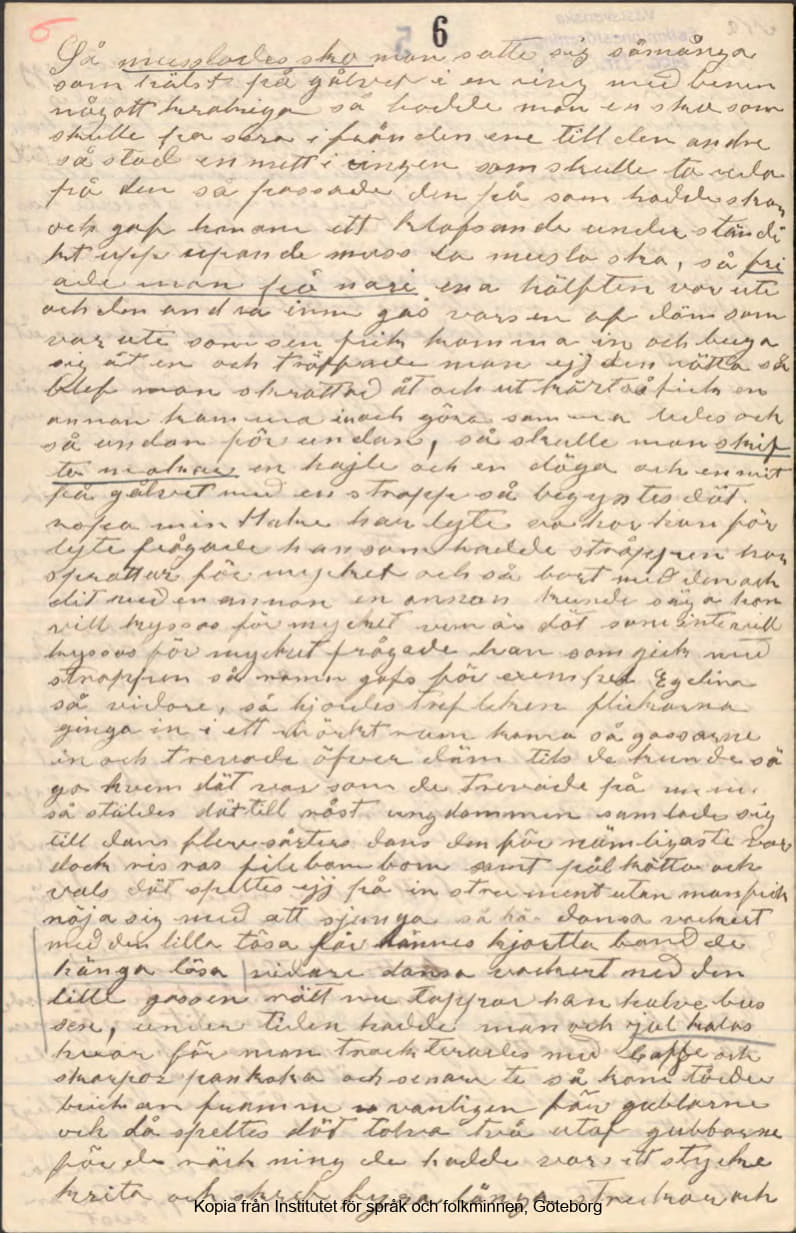 6
6
Så musslades sko man satte sig såmånga
som hälst på gålvet i en ring med benen
någott krokiga så hadde man en sko som
skulle fra sera ifrån den ene till den andre
så stod en mitt i ringen som skulle ta reda
på den så passade den på som hadde skon
och gaf honom ett klafsande under ständi
kt upp repande muss la mussla sko, så fri
ade man på nari ena hälften var ute
och den andra inne gås varsen af däm som
var ute som sen fick komma in och buga
sig åt en och träffade man ejj den rätta så
blef man skrattad åt och ut kört så fick en
annan komma in och göra samma ledes och
så undan för undan, så skulle man skif
ta makar en kajle och en döga och en mit
på gålvet med en stropp så begyntes dät
ropa min Make har lyte va har han för
lyte frågade han som hadde stroppen han
sprattar för mycket och så bort med den och
dit med en annan en annan kunde säga han
vill kyssas för mycket vem är dät som inte vill
kyssas för mycket frågade han som gick med
stroppen så namn gafs för exempel Egelina
så vidare, så hjordes tref leken flickorna
ginga in i ett mörkt rum koma så gossarne
in och trevade öfver däm tils de kunde sä
ga hvem dät var som de trevade på
så stäldes dät till nåst ungdommen samlade sig
till dans flere sårters dans den för nämligaste var
dock ris ras filebom bom samt pålkötta och
vals dät speltes ejj på in strument utan man fick
nöja sig med att sjunga så hä dansa vackert
med den lilla tösa får hännes kjortla band de
hänga lösa vidare dansa vackert med den
lille gossen rätt nu tappar han halve bus
sen, under tiden hadde man och jul kalas
hvar för man trackterades med Caffe och
skorpor pankaka och senare te så kom
framm vanligen får gubbarne
och då speltes dät tolva två utaf gubbarne
förde räck ning de hadde vars ett stycke
krita och skref långa streckor och
Kopia från Institutet för språk och folkminnen, Göteborg